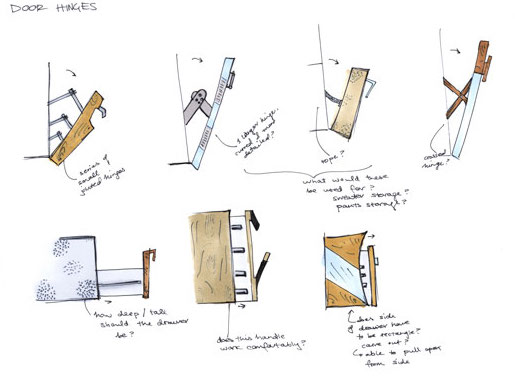 DOOR HINGES
series of
small
jointed hinges
1 larger hinge.
curved & more
detailed?
rope?
crossed
hinge?
what would these
be used for?
sweater storage?
pants storage?
how deep / tall
should the drawer
be?
does this handle
work comfortably?
does side
of drawer have
to be rectangle?
carve out?
able to pull open
from side